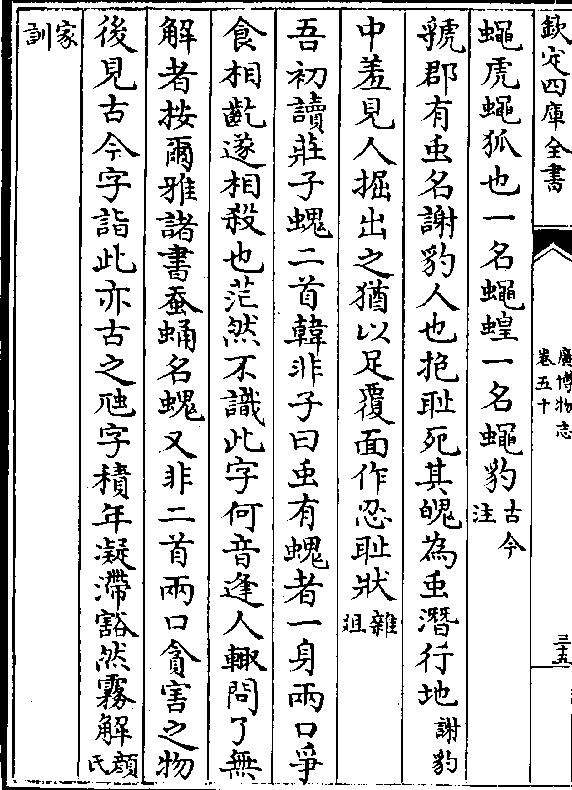 欽定四庫全書
廣博物志
卷五十
三五
蠅虎蠅狐也一名蠅蝗一名蠅豹古今注
虢郡有䖝名謝豹人也抱耻死其魄為䖝潛行地謝豹
中羞見人掘出之猶以足覆面作忍耻狀雜俎
吾初讀莊子螝二首韓非子曰䖝有螝者一身兩口爭
食相齕遂相殺也茫然不識此字何音逢人輙問了無
解者按爾雅諸書蚕蛹名螝又非二首兩口貪害之物
後見古今字詣此亦古之虺字積年凝滯豁然霧解顔氏
家訓